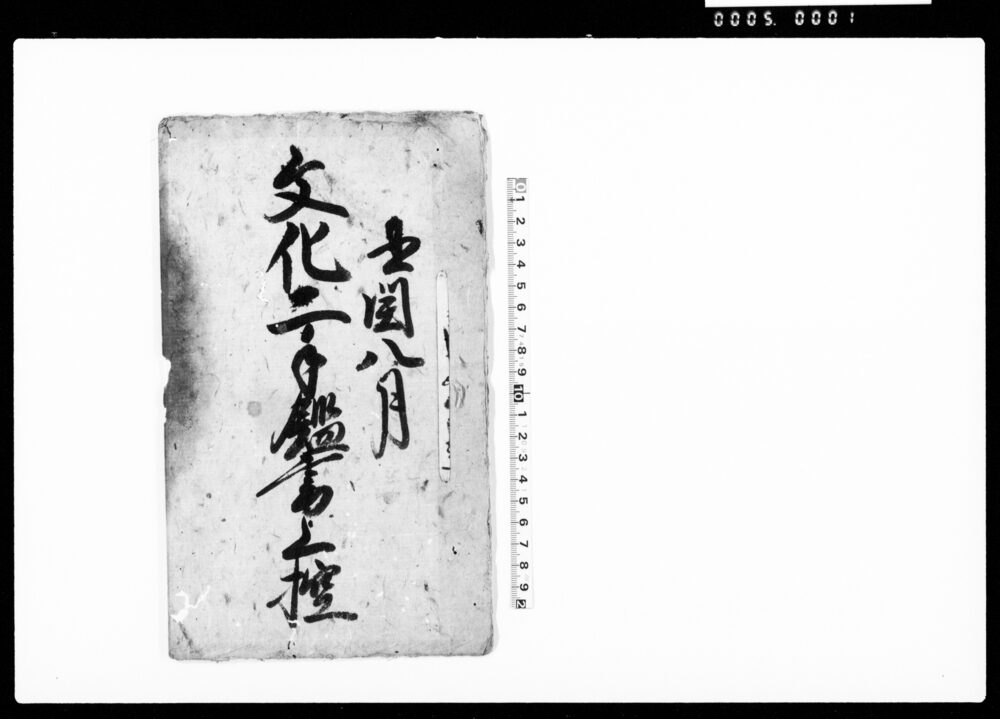 0005. 0001
丑閏八月
文化二年鑑書上控
0 1 2 3 4 5 6 7 8 9 10 1 2 3 4 5 6 7 8 9